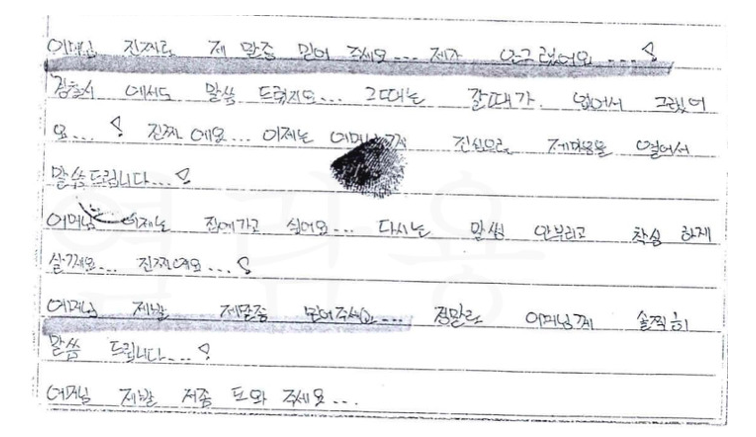 어머님 진짜로 제 말좀 믿어 주세요... 제가 안그랬어요 ...!
검찰시 에서도 말씀 드렸지도... 그때는 갈때가 없어서 그랬어
요...! 진짜 에요... 이제는 어머님께 진심으로 제마음을 열어서
말씀드립니다...!
어머님 이제는 집에가고 싶어요... 다시는 말썽 안부리고 착심 하재
살께요... 진짜에요...!
어머님 제발 제말좀 믿어주세요... 정말로 어머님께 솔찍히
말씀 드립니다...!
어머님 제발 저좀 도와 주세요...
열람용